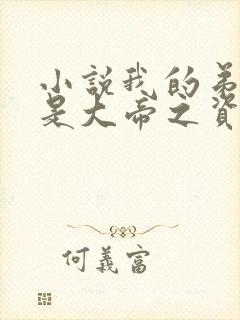 小説我的弟
是大帝之資
何義富